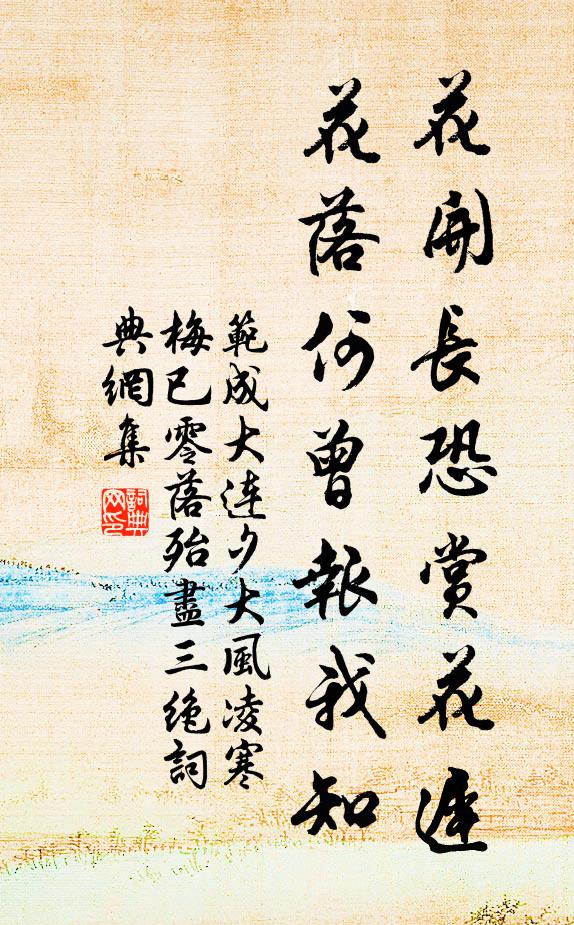 花開長恐賞花遲
花落何曾報我知
範成大連夕大風凌寒
梅已零落殆盡三絕詞
典網集
詞典
网印